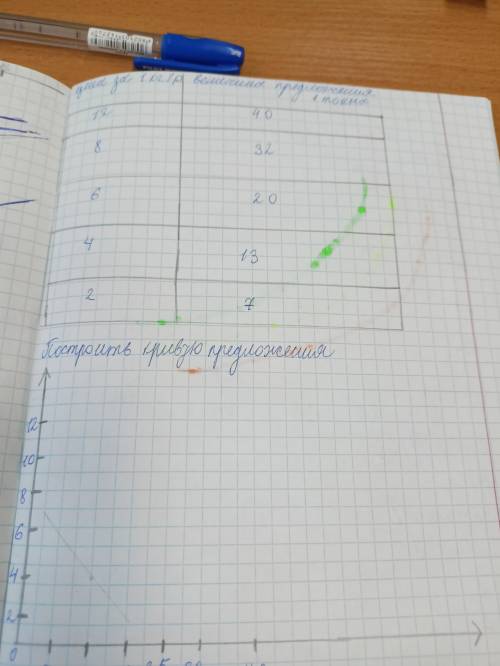 цена за 1 кг/р величина предложения
т тонна
12 40
8 32
6 20
4 13
2 7
Построить кривую предложения
12
10
8
6
4
2
0